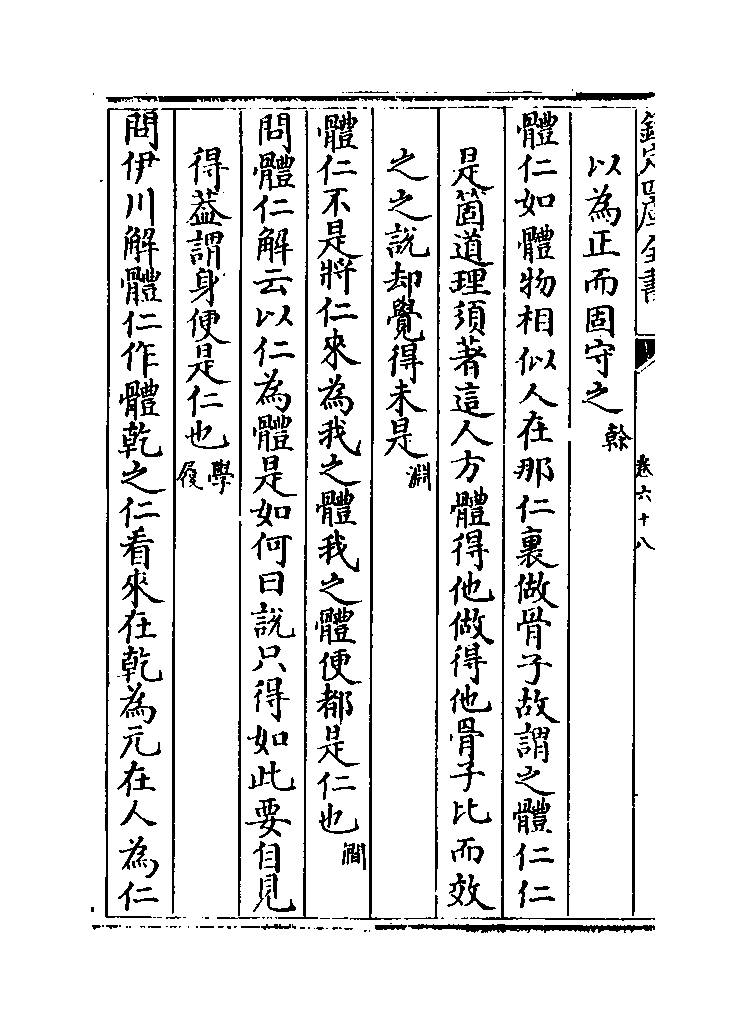 欽定四庫全書
卷六十八
以為正而固守之 榦
體仁如體物相似人在那仁裏做骨子故謂之體仁仁
是箇道理須著這人方體得他做得他骨子比而效
之之說却覺得未是 淵
體仁不是將仁來為我之體我之體便都是仁也 㵎
問體仁解云以仁為體是如何曰說只得如此要自見
得葢謂身便是仁也 學履
問伊川解體仁作體乾之仁看來在乾為元在人為仁